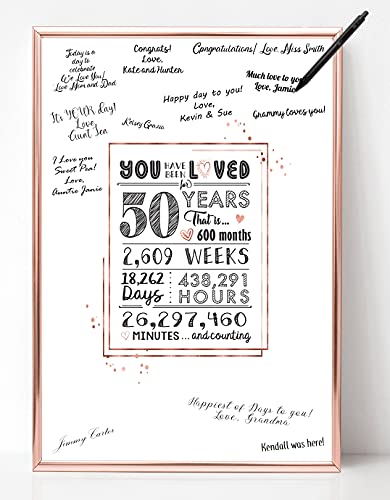 Today is a
day to
celebrate
We Love You!
Love Mom and Dad
Congrats!
Love,
Kate and Hunter
Congratulations! Love, Miss Smith
Much love to you
Love, Jamie
It's YOUR day!
Love,
Aunt Jen
Krissy Grossi
Happy day to you!
Love,
Kevin & Sue
Grammy Loves you!
I Love you
Sweet Pea!
Love,
Auntie Janie
YOU HAVE BEEN LOVED
for
50 YEARS
That is...
600 months
2,609 WEEKS
18,262 Days
438,291 HOURS
26,297,460
MINUTES ...and counting
Happiest of Days to you!
Love, Grandma
Jimmy Carter
Kendall was here!